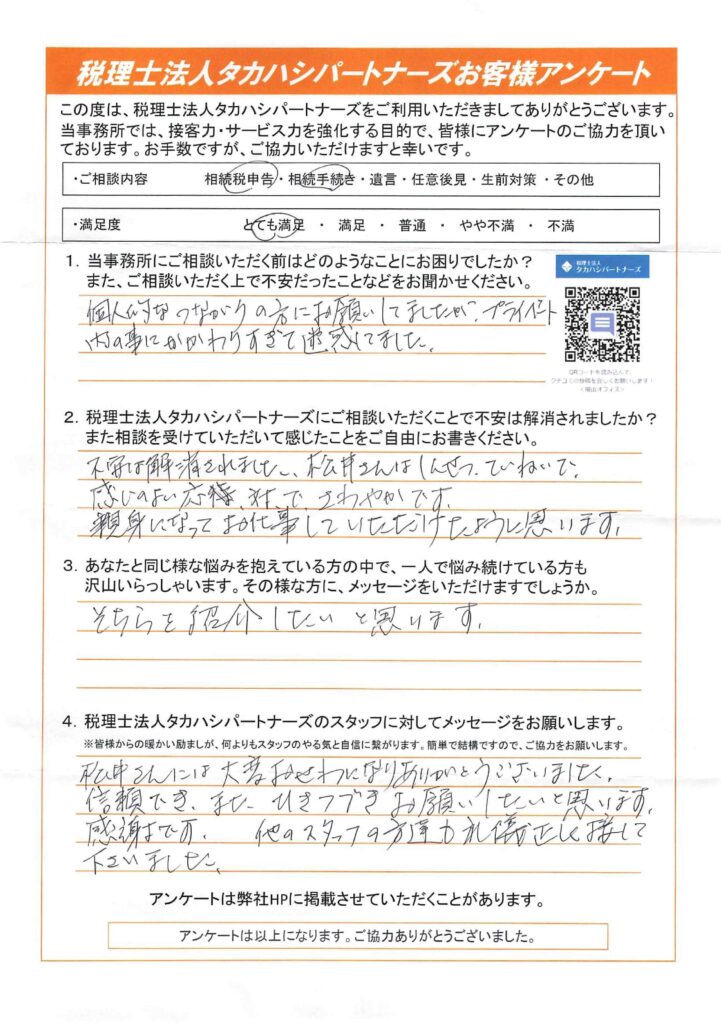 税理士法人タカハシパートナーズお客様アンケート
この度は、税理士法人タカハシパートナーズをご利用いただきましてありがとうございます。
当事務所では、接客力・サービス力を強化する目的で、皆様にアンケートのご協力を頂い
ております。お手数ですが、ご協力いただけますと幸いです。
・ご相談内容 相続税申告・相続手続き・遺言・任意後見・生前対策・その他
・満足度 とても満足 ・ 満足 ・ 普通 ・ やや不満 ・ 不満
1. 当事務所にご相談いただく前はどのようなことにお困りでしたか?
また、ご相談いただく上で不安だったことなどをお聞かせください。
税理士法人
タカハシパートナーズ
個人的なつながりの方にお願いしてましたが、プライベート
内の事にかかわりすぎて迷惑してました。
QRコードを読み込んで、
クチコミの投稿を宜しくお願いします!
2. 税理士法人タカハシパートナーズにご相談いただくことで不安は解消されましたか?
また相談を受けていただいて感じたことをご自由にお書きください。
不安は解消されました、松井さんはしんせつ、ていねいで、
感じのよい応待、で、さわやかです。
親身になってお仕事していただけたように思います。
3. あなたと同じ様な悩みを抱えている方の中で、一人で悩み続けている方も
沢山いらっしゃいます。その様な方に、メッセージをいただけますでしょうか。
そちらを紹介したいと思います。
4. 税理士法人タカハシパートナーズのスタッフに対してメッセージをお願いします。
※皆様からの暖かい励ましが、何よりもスタッフのやる気と自信に繋がります。簡単で結構ですので、ご協力をお願いします。
松井さんには大変おせわになりありがとうございました。
信頼でき、また ひきつづきお願いしたいと思います。
感謝です。 他のスタッフの方達も礼儀正しく接して
下さいました。
アンケートは弊社HPに掲載させていただくことがあります。
アンケートは以上になります。ご協力ありがとうございました。